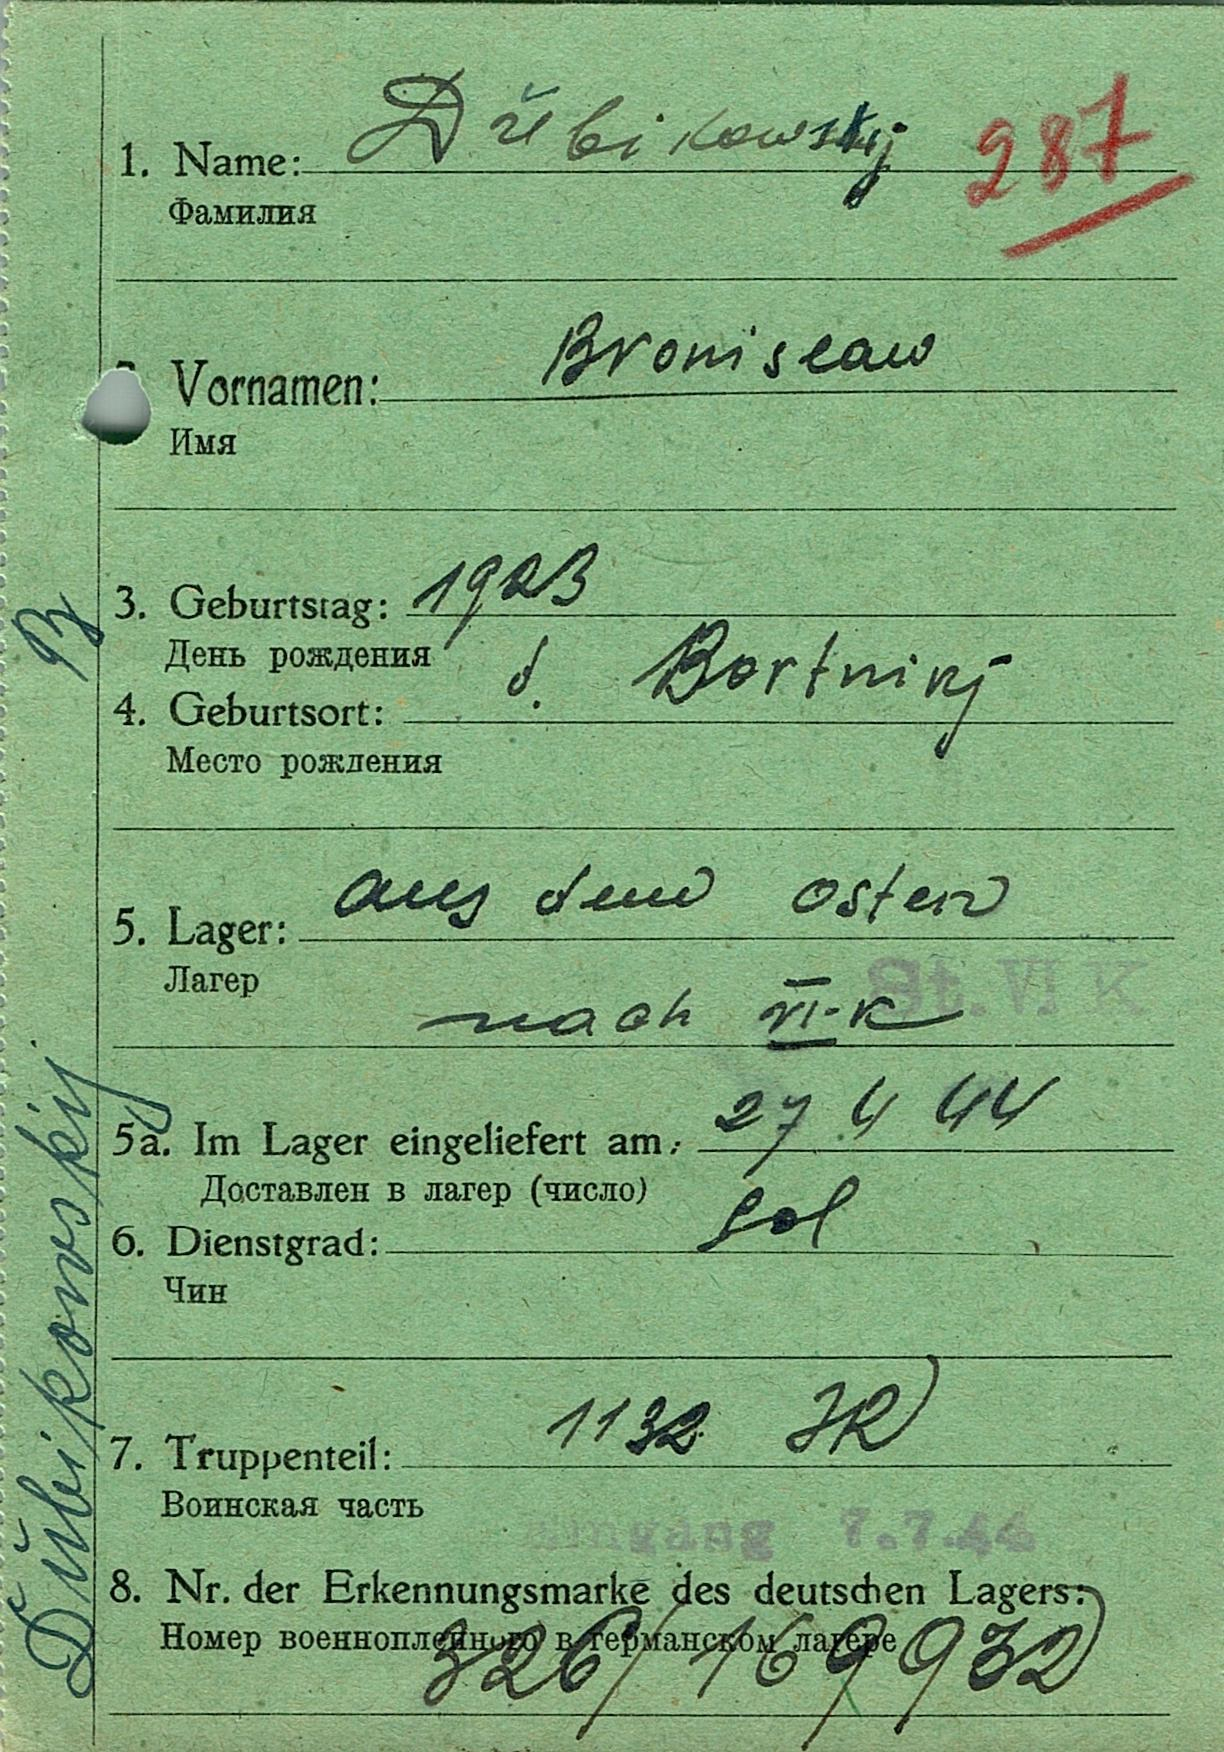 1. Name: Dŭbikowskij 287
Фамилия
Vornamen: Bronislaw
Имя
3. Geburtstag: 1923
День рождения
4. Geburtsort: d. Bortnikj
Место рождения
5. Lager: aus dem Osten
Лагер
St. VI K
nach VI-K
5a. Im Lager eingeliefert am: 27 4 44
Доставлен в лагер (число)
6. Dienstgrad: Sol
Чин
7. Truppenteil: 1132 JR
Воинская часть
Eingang 7.7.44
8. Nr. der Erkennungsmarke des deutschen Lagers:
Номер военнопленного в германском лагере
326/169932
Dŭbikowskij Br